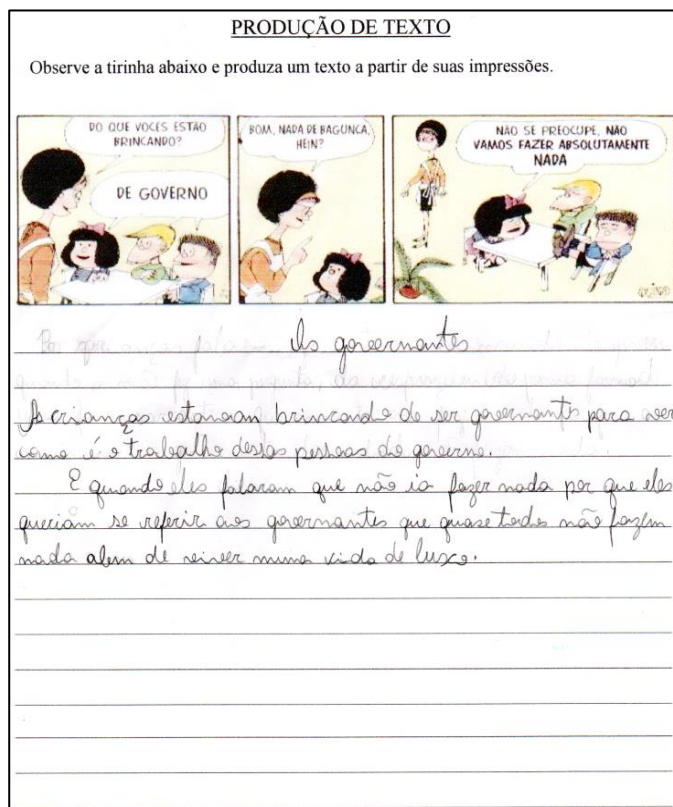 PRODUÇÃO DE TEXTO
Observe a tirinha abaixo e produza um texto a partir de suas impressões.
DO QUE VOCÊS ESTÃO
BRINCANDO?
DE GOVERNO
BOM, NADA DE BAGUNÇA,
HEIN?
NÃO SE PREOCUPE, NÃO
VAMOS FAZER ABSOLUTAMENTE
NADA
Os governantes
As crianças estavam brincando de ser governants para ver
como é o trabalho dessas pessoas do governo.
E quando eles falaram que não ia fazer nada por que eles
queriam se referir aos governantes que quase todos não fazem
nada alem de viver numa vida de luxo.